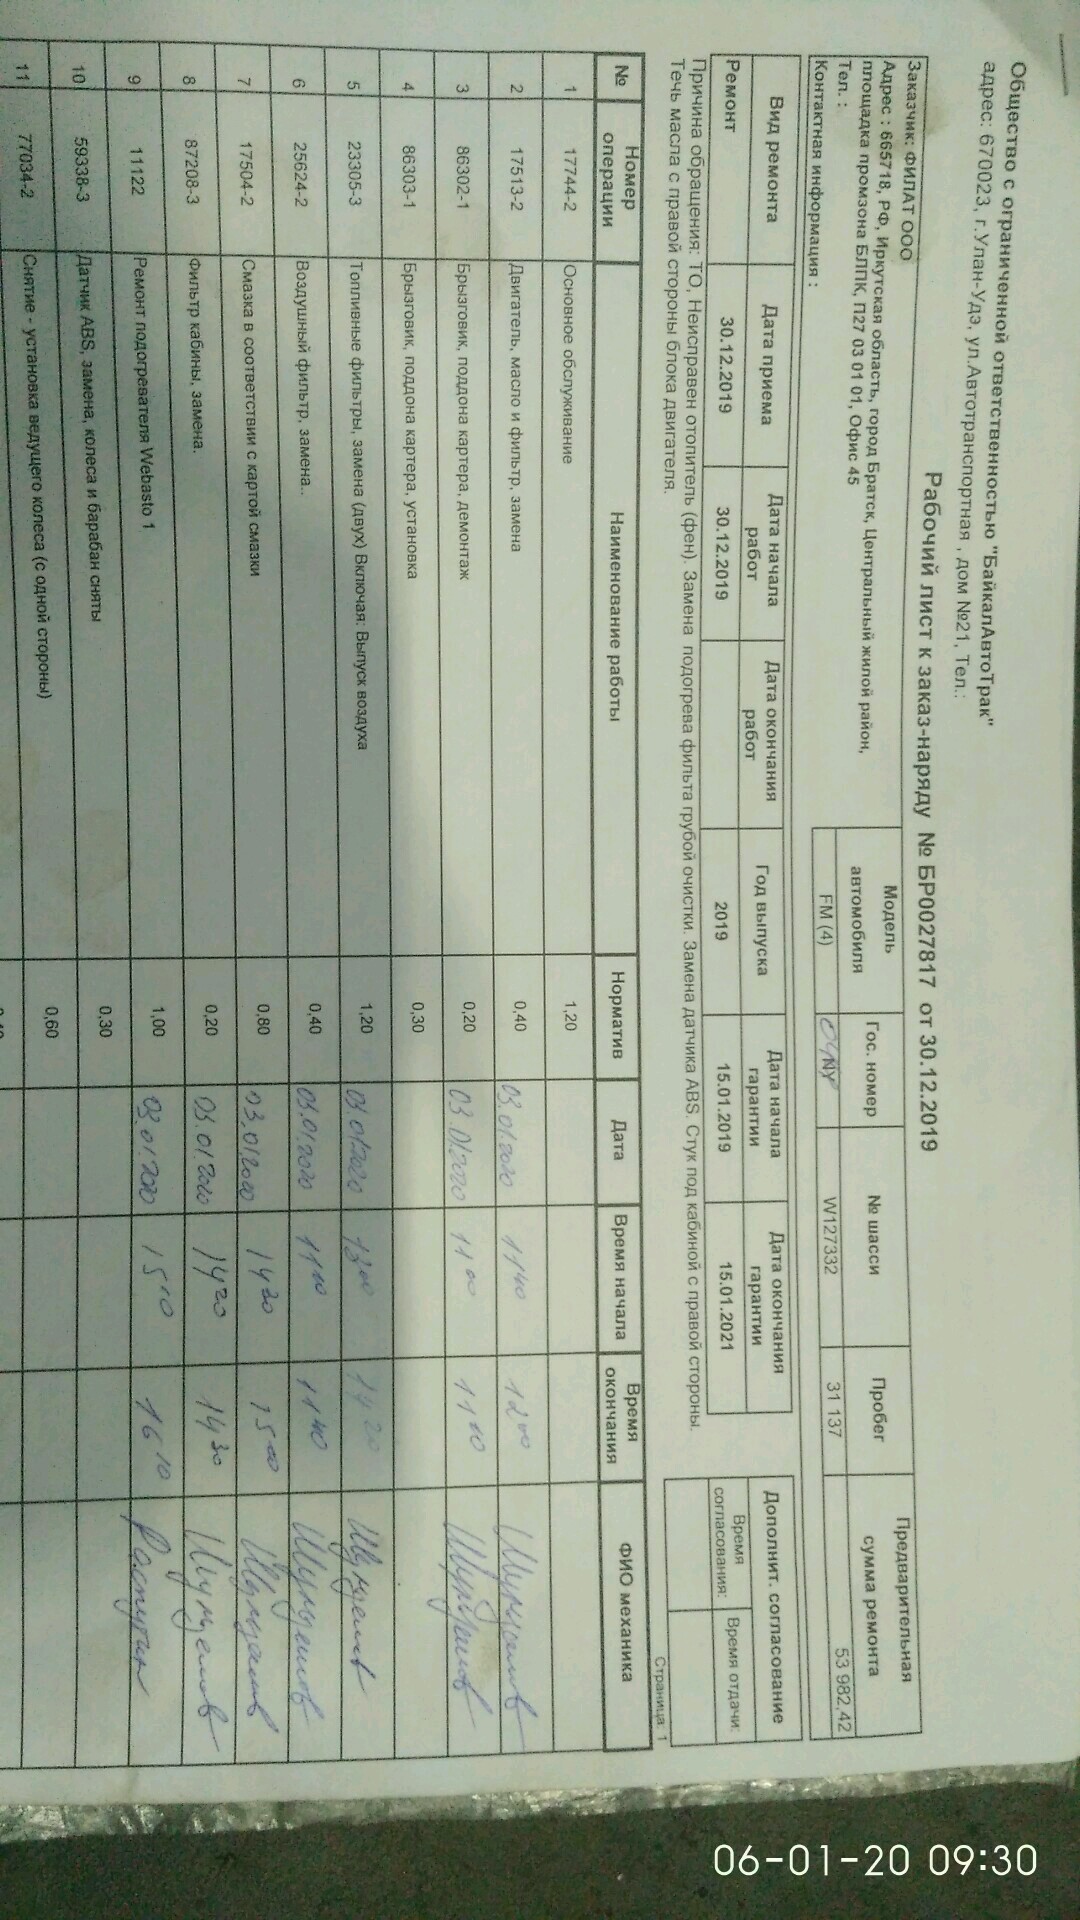 Общество с ограниченной ответственностью "БайкалАвтоТрак"
адрес: 670023, г.Улан-Удэ, ул.Автотранспортная , дом №21, Тел.:
Рабочий лист к заказ-наряду № БР0027817 от 30.12.2019
Заказчик: ФИЛАТ ООО
Адрес : 665718, РФ, Иркутская область, город Братск, Центральный жилой район,
площадка промзона БЛПК, П27 03 01 01, Офис 45
Тел. :
Контактная информация :
Модель автомобиля Гос. номер № шасси Пробег Предварительная сумма ремонта
FM (4) W127332 31 137 53 982,42
Вид ремонта Дата приема Дата начала работ Дата окончания работ Год выпуска Дата начала гарантии Дата окончания гарантии
Ремонт 30.12.2019 30.12.2019 2019 15.01.2019 15.01.2021
Дополнит. согласование
Время согласования: Время отдачи:
Причина обращения: ТО, Неисправен отопитель (фен). Замена подогрева фильта грубой очистки. Замена датчика ABS. Стук под кабиной с правой стороны.
Течь масла с правой стороны блока двигателя.
Страница: 1
№ Номер операции Наименование работы Норматив Дата Время начала Время окончания ФИО механика
1 17744-2 Основное обслуживание 1,20
2 17513-2 Двигатель, масло и фильтр, замена 0,40 03.01.2020 11 40 12 00
3 86302-1 Брызговик, поддона картера, демонтаж 0,20 03.01.2020 11 00 11 10
4 86303-1 Брызговик, поддона картера, установка 0,30
5 23305-3 Топливные фильтры, замена (двух) Включая: Выпуск воздуха 1,20 03.01.2020 13 00 14 20
6 25624-2 Воздушный фильтр, замена.. 0,40 03.01.2020 11 10 11 40
7 17504-2 Смазка в соответствии с картой смазки 0,80 03.01.2020 14 30 15 00
8 87208-3 Фильтр кабины, замена. 0,20 03.01.2020 14 20 14 30
9 11122 Ремонт подогревателя Webasto 1 1,00 03.01.2020 15 10 16 10 Распутин
10 59338-3 Датчик ABS, замена, колеса и барабан сняты 0,30
11 77034-2 Снятие - установка ведущего колеса (с одной стороны) 0,60
06-01-20 09:30